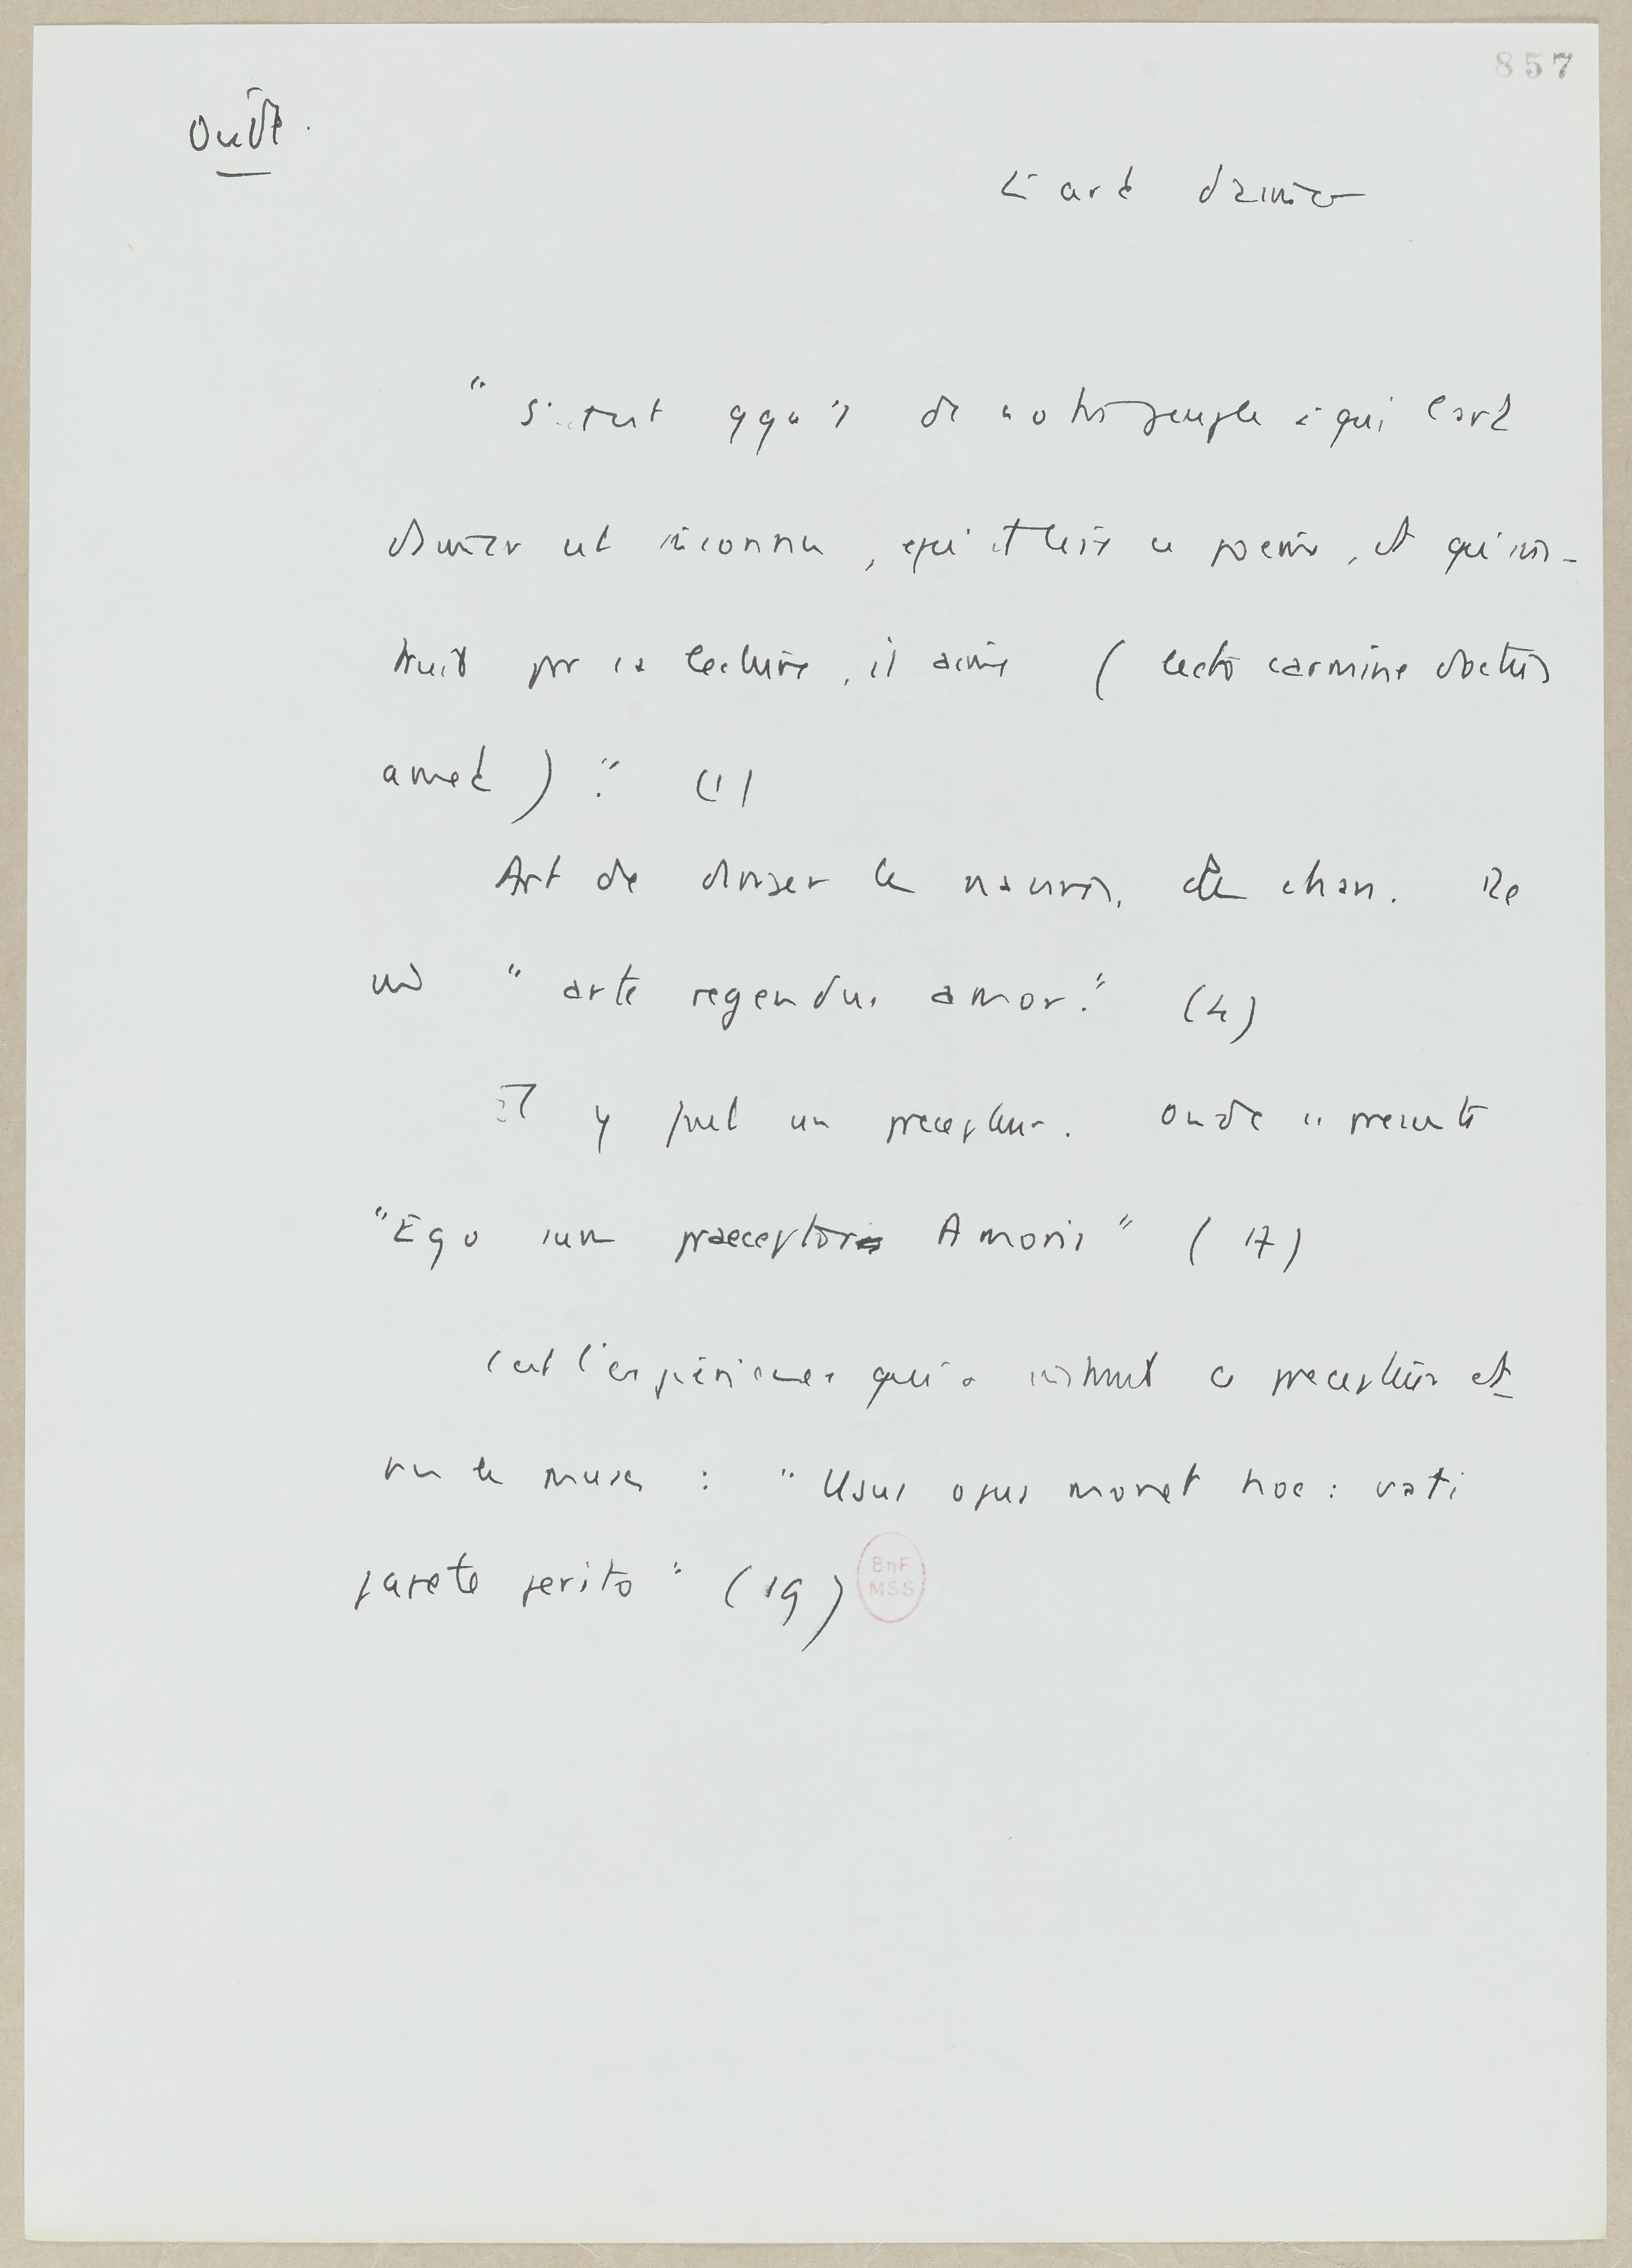 857
Ovide.
L'art d'aimer
"S'il est qqu'1 de notre peuple à qui l'art
d'aimer est inconnu, qu'il lise ce poème, et qu'ins-
truit par sa lecture, il aime (lecto carmine doctus
amet)." (1)
Art de diriger les navires, des chars. De
"arte regendus amor." (4)
Il y faut un précepteur. Ovide se présente
"Ego sum praeceptor Amoris" (17)
C'est l'expérience qui a instruit ce précepteur et
non les muses : "Usus opus movet hoc : vati
parete perito" (29)
BnF
MSS